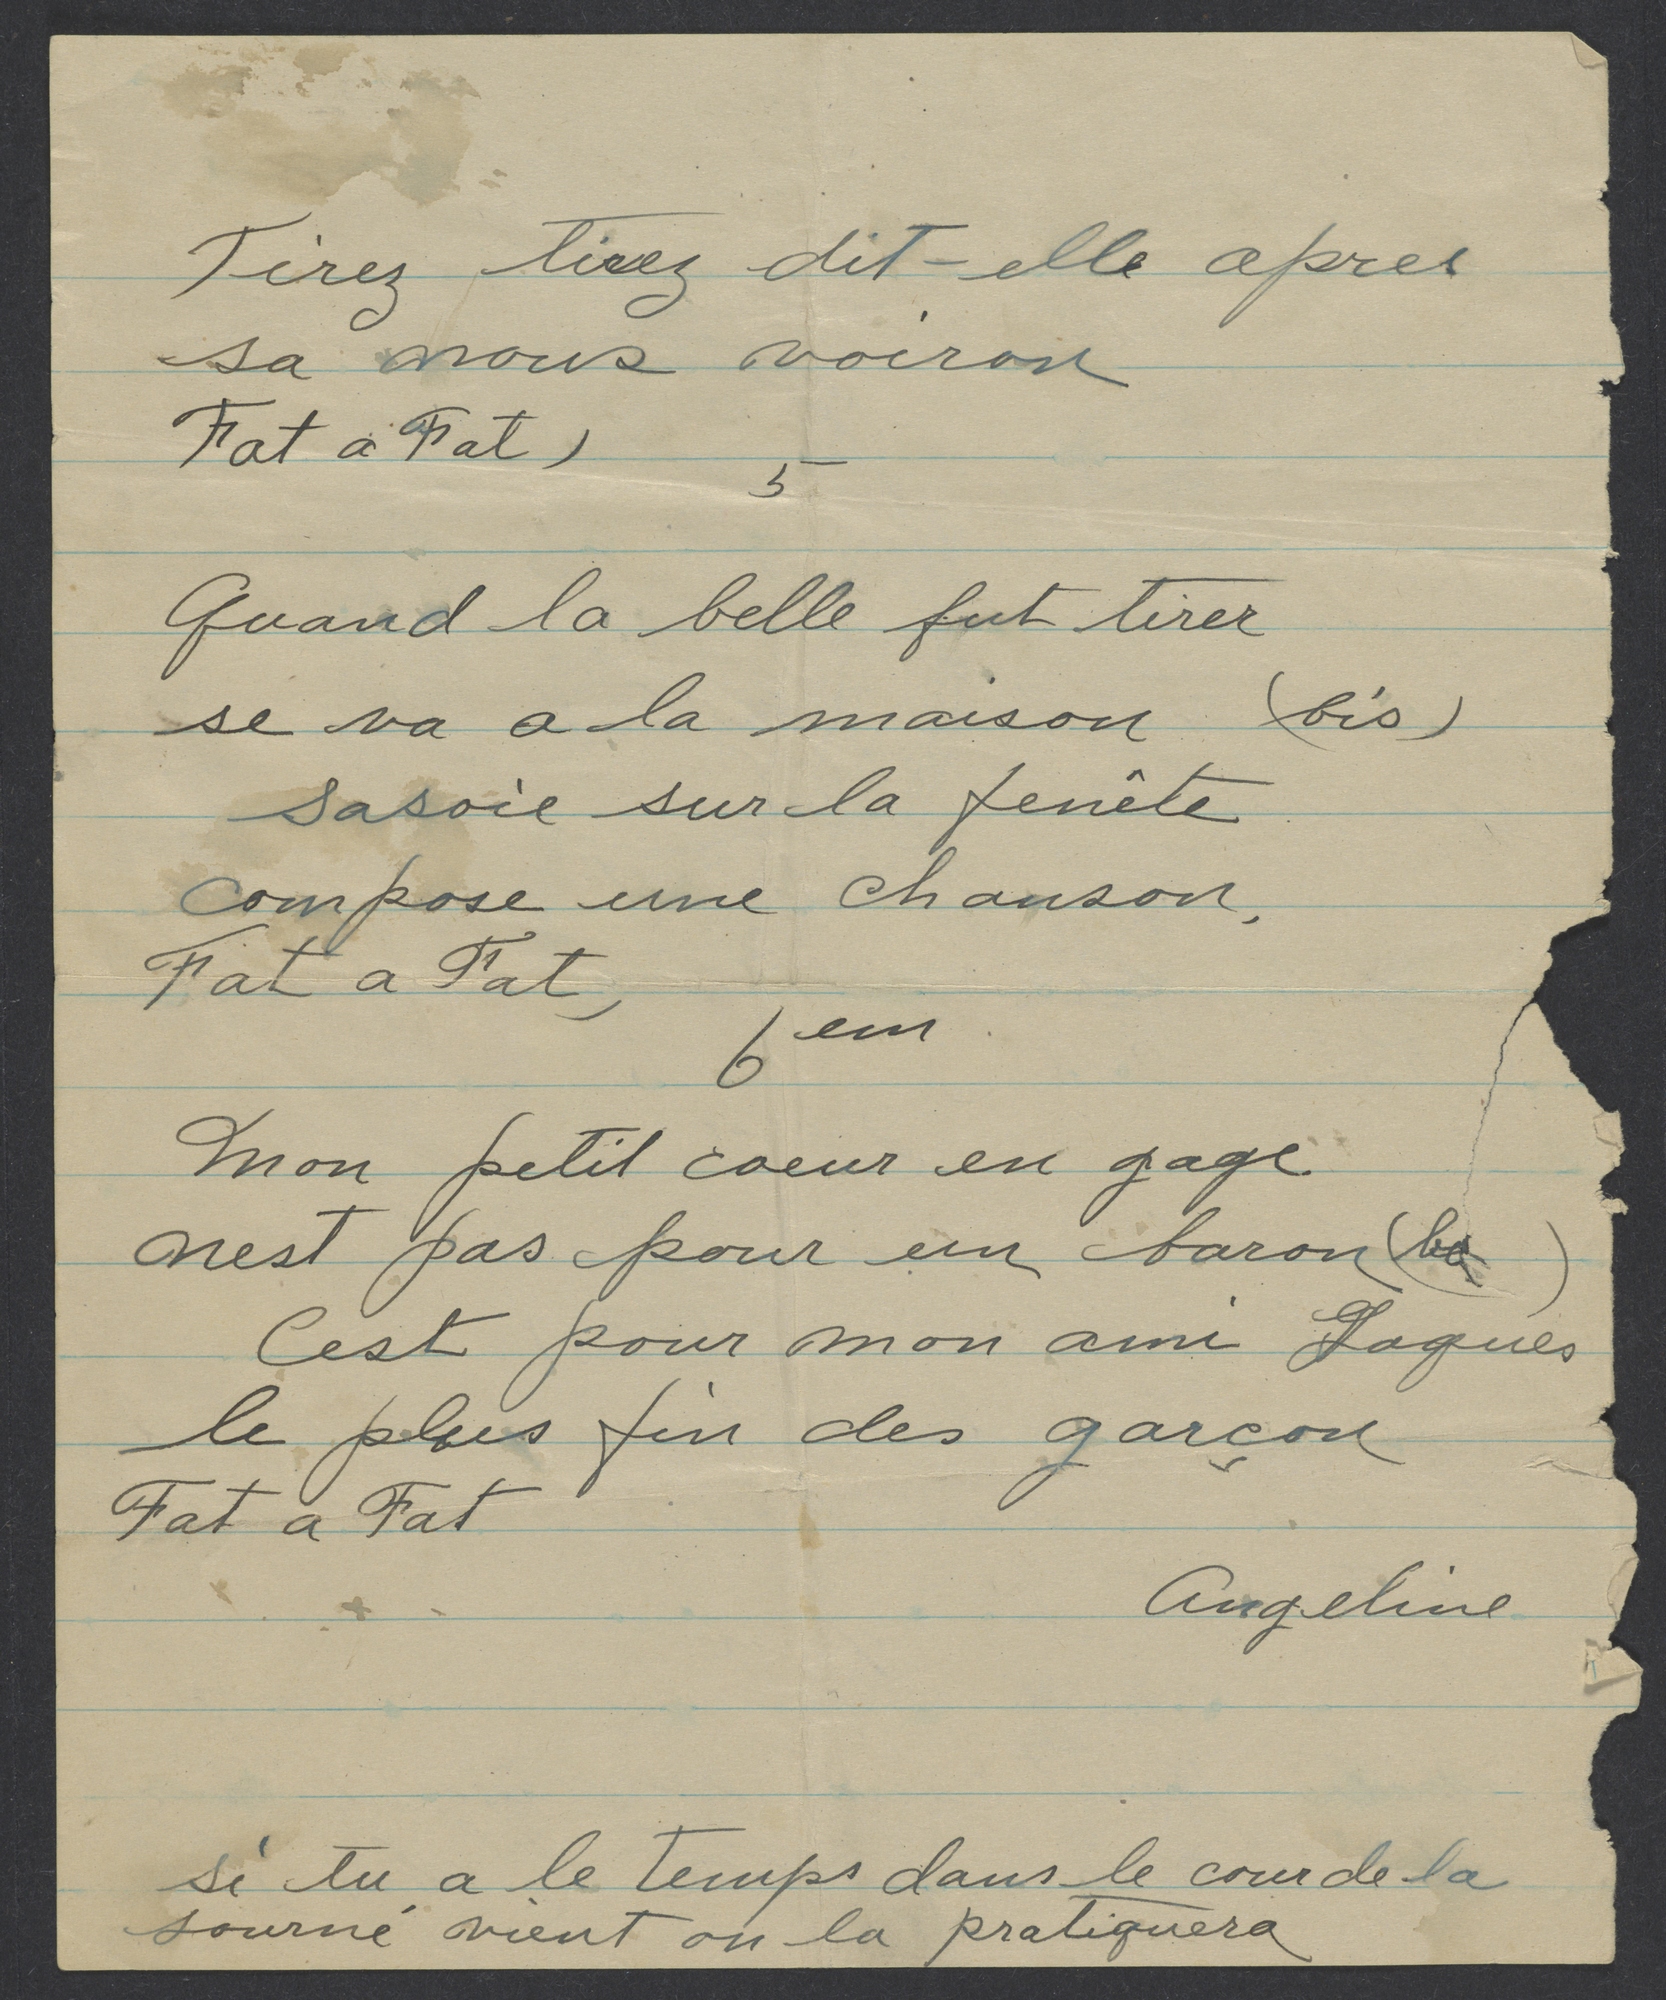 Tirez tirez dit-elle apres
sa nous voiron
Fat a Fat,
5
Quand la belle fut tirer
se va a la maison (bis)
sasoie sur la fenête
compose une chanson,
Fat a Fat,
6 em
Mon petit coeur en gage
nest pas pour un baron ( )
Cest pour mon ami Jaques
le plus fin des garçon
Fat a Fat
Angeline
si tu a le temps dans le cour de la
journé vient on la pratiquera